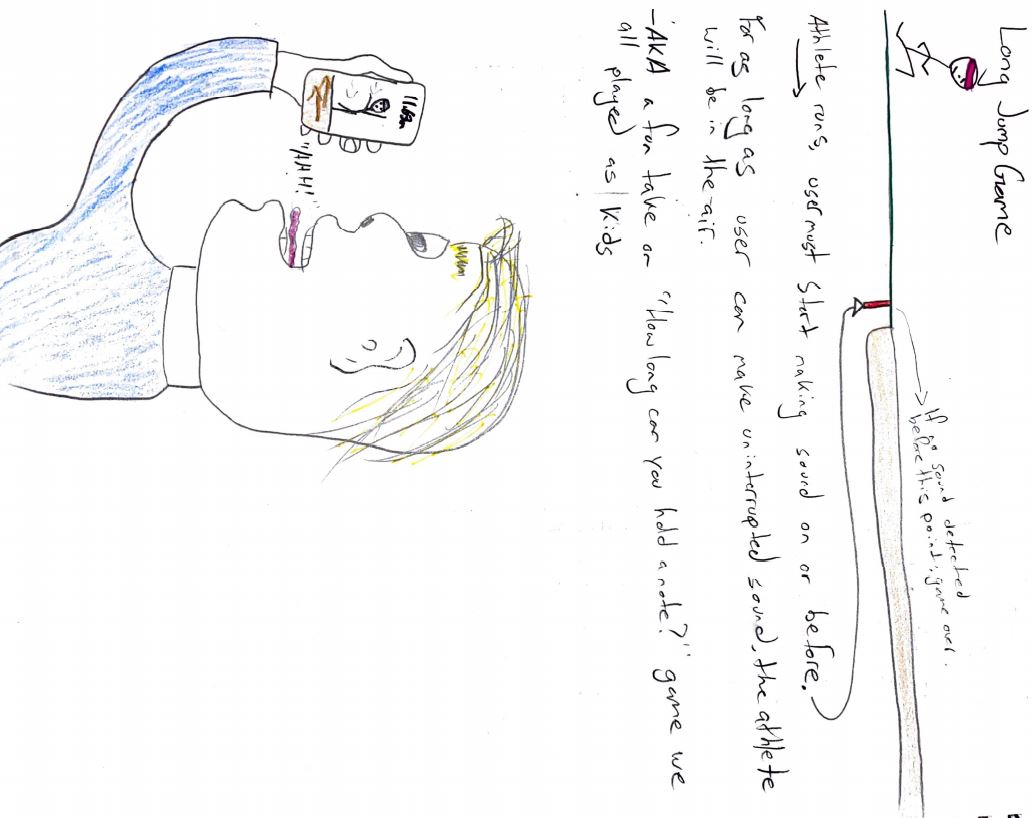 Long Jump Game
If no sound detected
before this point, game over.
Athlete runs, user must start making sound on or before.
For as long as user can make uninterrupted sound, the athlete
will be in the air.
-AKA a fun take on "How long can you hold a note?" game we
all played as kids
11.63m
"AAH!"